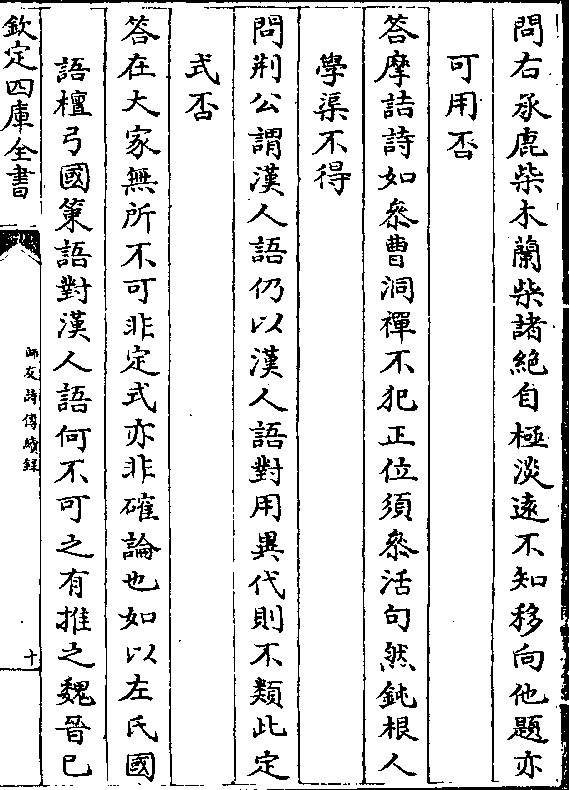 問右丞鹿柴木蘭柴諸絶自極淡逺不知移向他題亦
可用否
答摩詰詩如叅曹洞禪不犯正位須叅活句然鈍根人
學渠不得
問荆公謂漢人語仍以漢人語對用異代則不類此定
式否
答在大家無所不可非定式亦非確論也如以左氏國
語檀弓國策語對漢人語何不可之有推之魏晉已
欽定四庫全書
師友詩傳續録
十